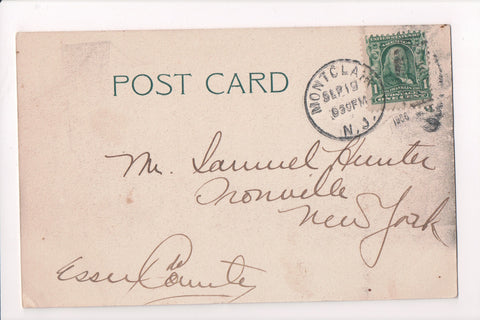 POST CARD
MONTCLAIR
SEP 19
630PM
N.J.
1906
Mr. Samuel Hunter
Ironville
New York
Essex County